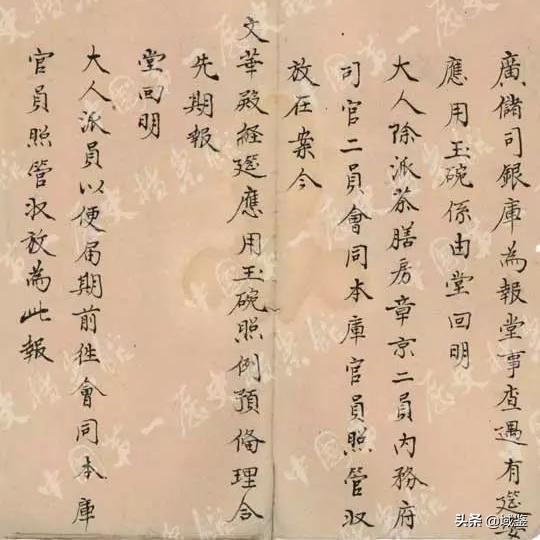 廣儲司銀庫為報堂事查遇有筵宴
應用玉碗係由堂回明
大人除派茶膳房章京二員内務府
司官二員會同本庫官員照管収
放在案今
文華殿經筵應用玉碗照例預俻理合
先期報
堂回明
大人派員以便届期前徃會同本庫
官員照管収放為此報
中国第一历史档案馆
头条 @域鉴